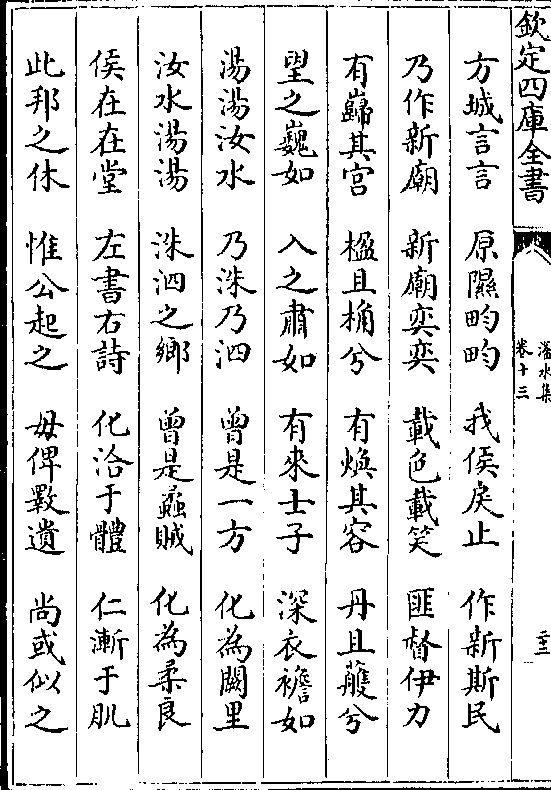 欽定四庫全書
滏水集
卷十三
二十三
方城言言　原隰畇畇　我侯戾止　作新斯民
乃作新廟　新廟奕奕　載色載笑　匪督伊力
有巋其宮　楹且桷兮　有煥其容　丹且雘兮
望之巍如　入之肅如　有來士子　深衣襜如
湯湯汝水　乃洙乃泗　曾是一方　化為闕里
汝水湯湯　洙泗之鄉　曾是蟊賊　化為柔良
侯在在堂　左書右詩　化洽于體　仁漸于肌
此邦之休　惟公起之　毋俾斁遺　尚或似之